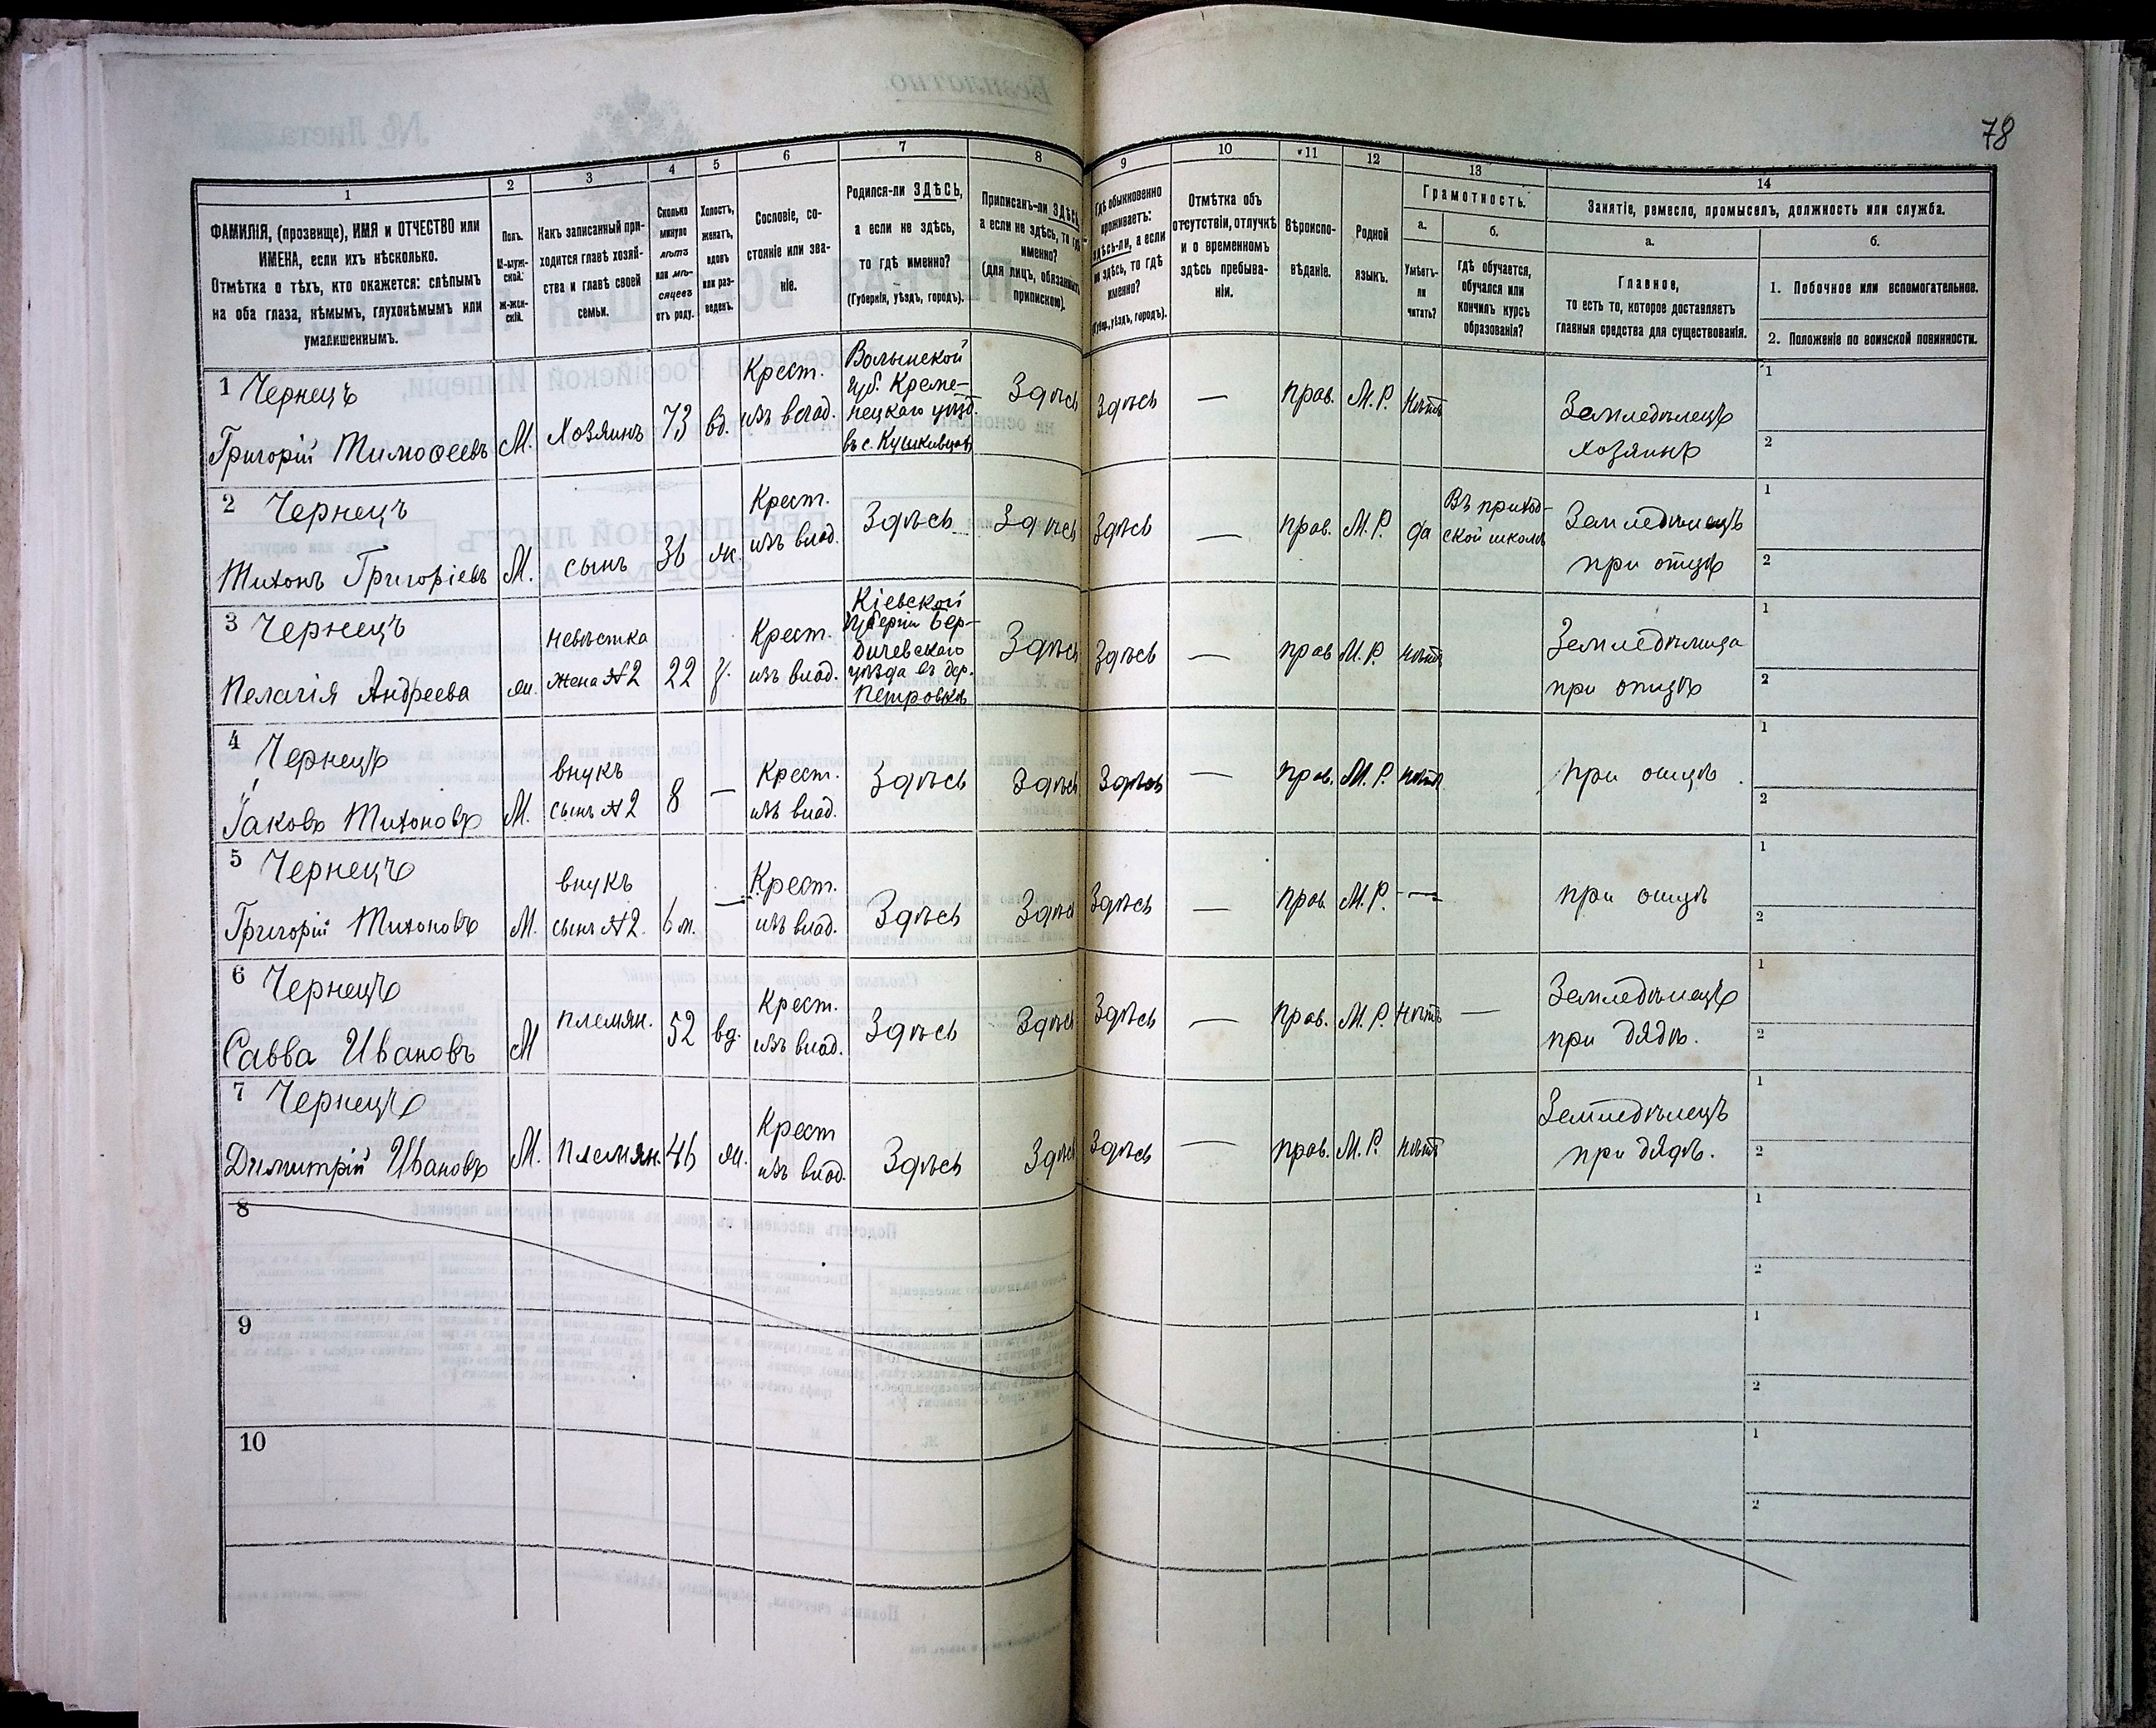 78
1
2
3
4
5
6
7
8
9
10
11
12
13
14
ФАМИЛІЯ, (прозвище), ИМЯ и ОТЧЕСТВО или
ИМЕНА, если ихъ нѣсколько.
Отмѣтка о тѣхъ, кто окажется: слѣпымъ
на оба глаза, нѣмымъ, глухонѣмымъ или
умалишеннымъ.
Полъ.
М-муж-
ской.
Ж-жен-
скій.
Какъ записанный при-
ходится главѣ хозяй-
ства и главѣ своей
семьи.
Сколько
минуло
лѣтъ
или мѣ-
сяцевъ
отъ роду.
Холостъ,
женатъ,
вдовъ
или раз-
веденъ.
Сословіе, со-
стояніе или зва-
ніе.
Родился-ли ЗДѢСЬ,
а если не здѣсь,
то гдѣ именно?
(Губернія, уѣздъ, городъ).
Приписанъ-ли ЗДѢСЬ,
а если не здѣсь, то гдѣ
именно?
(для лицъ, обязанныхъ
припискою).
Гдѣ обыкновенно
проживаетъ:
здѣсь-ли, а если
не здѣсь, то гдѣ
именно?
(Губер., уѣздъ, городъ).
Отмѣтка объ
отсутствіи, отлучкѣ
и о временномъ
здѣсь пребыва-
ніи.
Вѣроиспо-
вѣданіе.
Родной
языкъ.
Грамотность.
а.
Умѣетъ-
ли
читать?
б.
гдѣ обучается,
обучался или
кончилъ курсъ
образованія?
Занятіе, ремесло, промыселъ, должность или служба.
а.
Главное,
то есть то, которое доставляетъ
главныя средства для существованія.
б.
1. Побочное или вспомогательное.
2. Положеніе по воинской повинности.
1 Чернецъ
Григорій Тимоѳеевъ
М.
Хозяинъ
73
вд.
Крест.
изъ влад.
Волынской
губ. Креме-
нецкаго уѣзд.
въ с.
Здѣсь
Здѣсь
—
прав.
М. Р.
нѣтъ
Земледѣлецъ
хозяинъ
1
2
2 Чернецъ
Тихонъ Григоріевъ
М.
сынъ
36
ж.
Крест.
изъ влад.
Здѣсь
Здѣсь
Здѣсь
—
прав.
М. Р.
да
Въ приход-
ской школѣ
Земледѣлецъ
при отцѣ
1
2
3 Чернецъ
Пелагія Андреева
ж.
невѣстка
жена №2
22
з.
Крест.
изъ влад.
Кіевской
губерніи Бер-
дичевскаго
уѣзда въ дер.
Петровкѣ
Здѣсь
Здѣсь
—
прав
М. Р.
нѣтъ
Земледѣлица
при отцѣ
1
2
4 Чернецъ
Іаковъ Тихоновъ
М.
внукъ
сынъ №2
8
—
Крест.
изъ влад.
Здѣсь
Здѣсь
Здѣсь
—
прав.
М. Р.
нѣтъ
при отцѣ
1
2
5 Чернецъ
Григорій Тихоновъ
М.
внукъ
сынъ №2.
6 м.
—
Крест.
изъ влад.
Здѣсь
Здѣсь
Здѣсь
—
прав.
М. Р.
—
при отцѣ
1
2
6 Чернецъ
Савва Ивановъ
М
племян.
52
вд.
Крест.
изъ влад.
Здѣсь
Здѣсь
Здѣсь
—
прав.
М. Р.
нѣтъ
—
Земледѣлецъ
при дядѣ.
1
2
7 Чернецъ
Димитрій Ивановъ
М.
племян.
46
ж.
Крест
изъ влад.
Здѣсь
Здѣсь
Здѣсь
—
прав.
М. Р.
нѣтъ
Земледѣлецъ
при дядѣ.
1
2
8
1
2
9
1
2
10
1
2